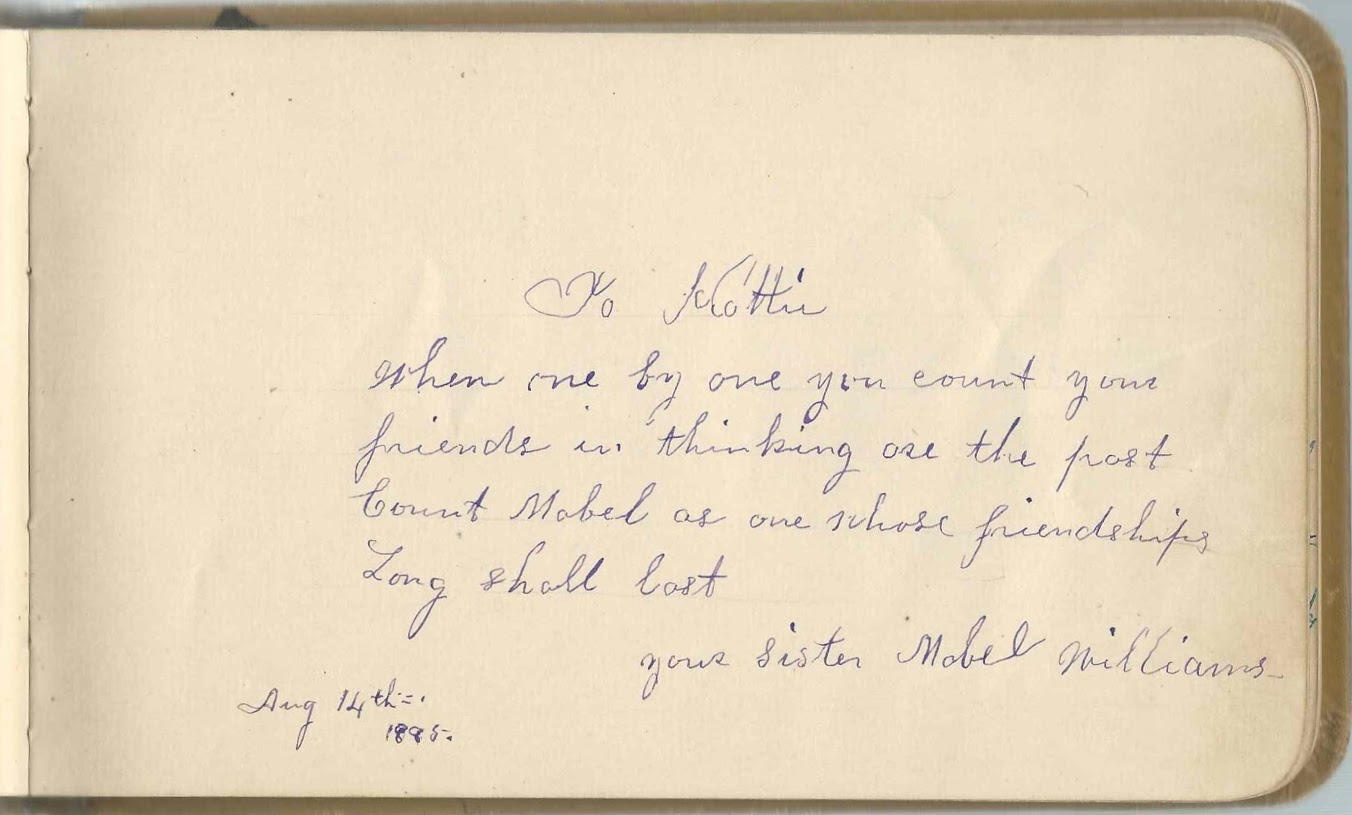 To Kottie
When one by one you count your
friends in thinking ore the past
Count Mabel as one whose friendships
Long shall last
your sister Mabel Williams-
Aug 14th=.
1895.